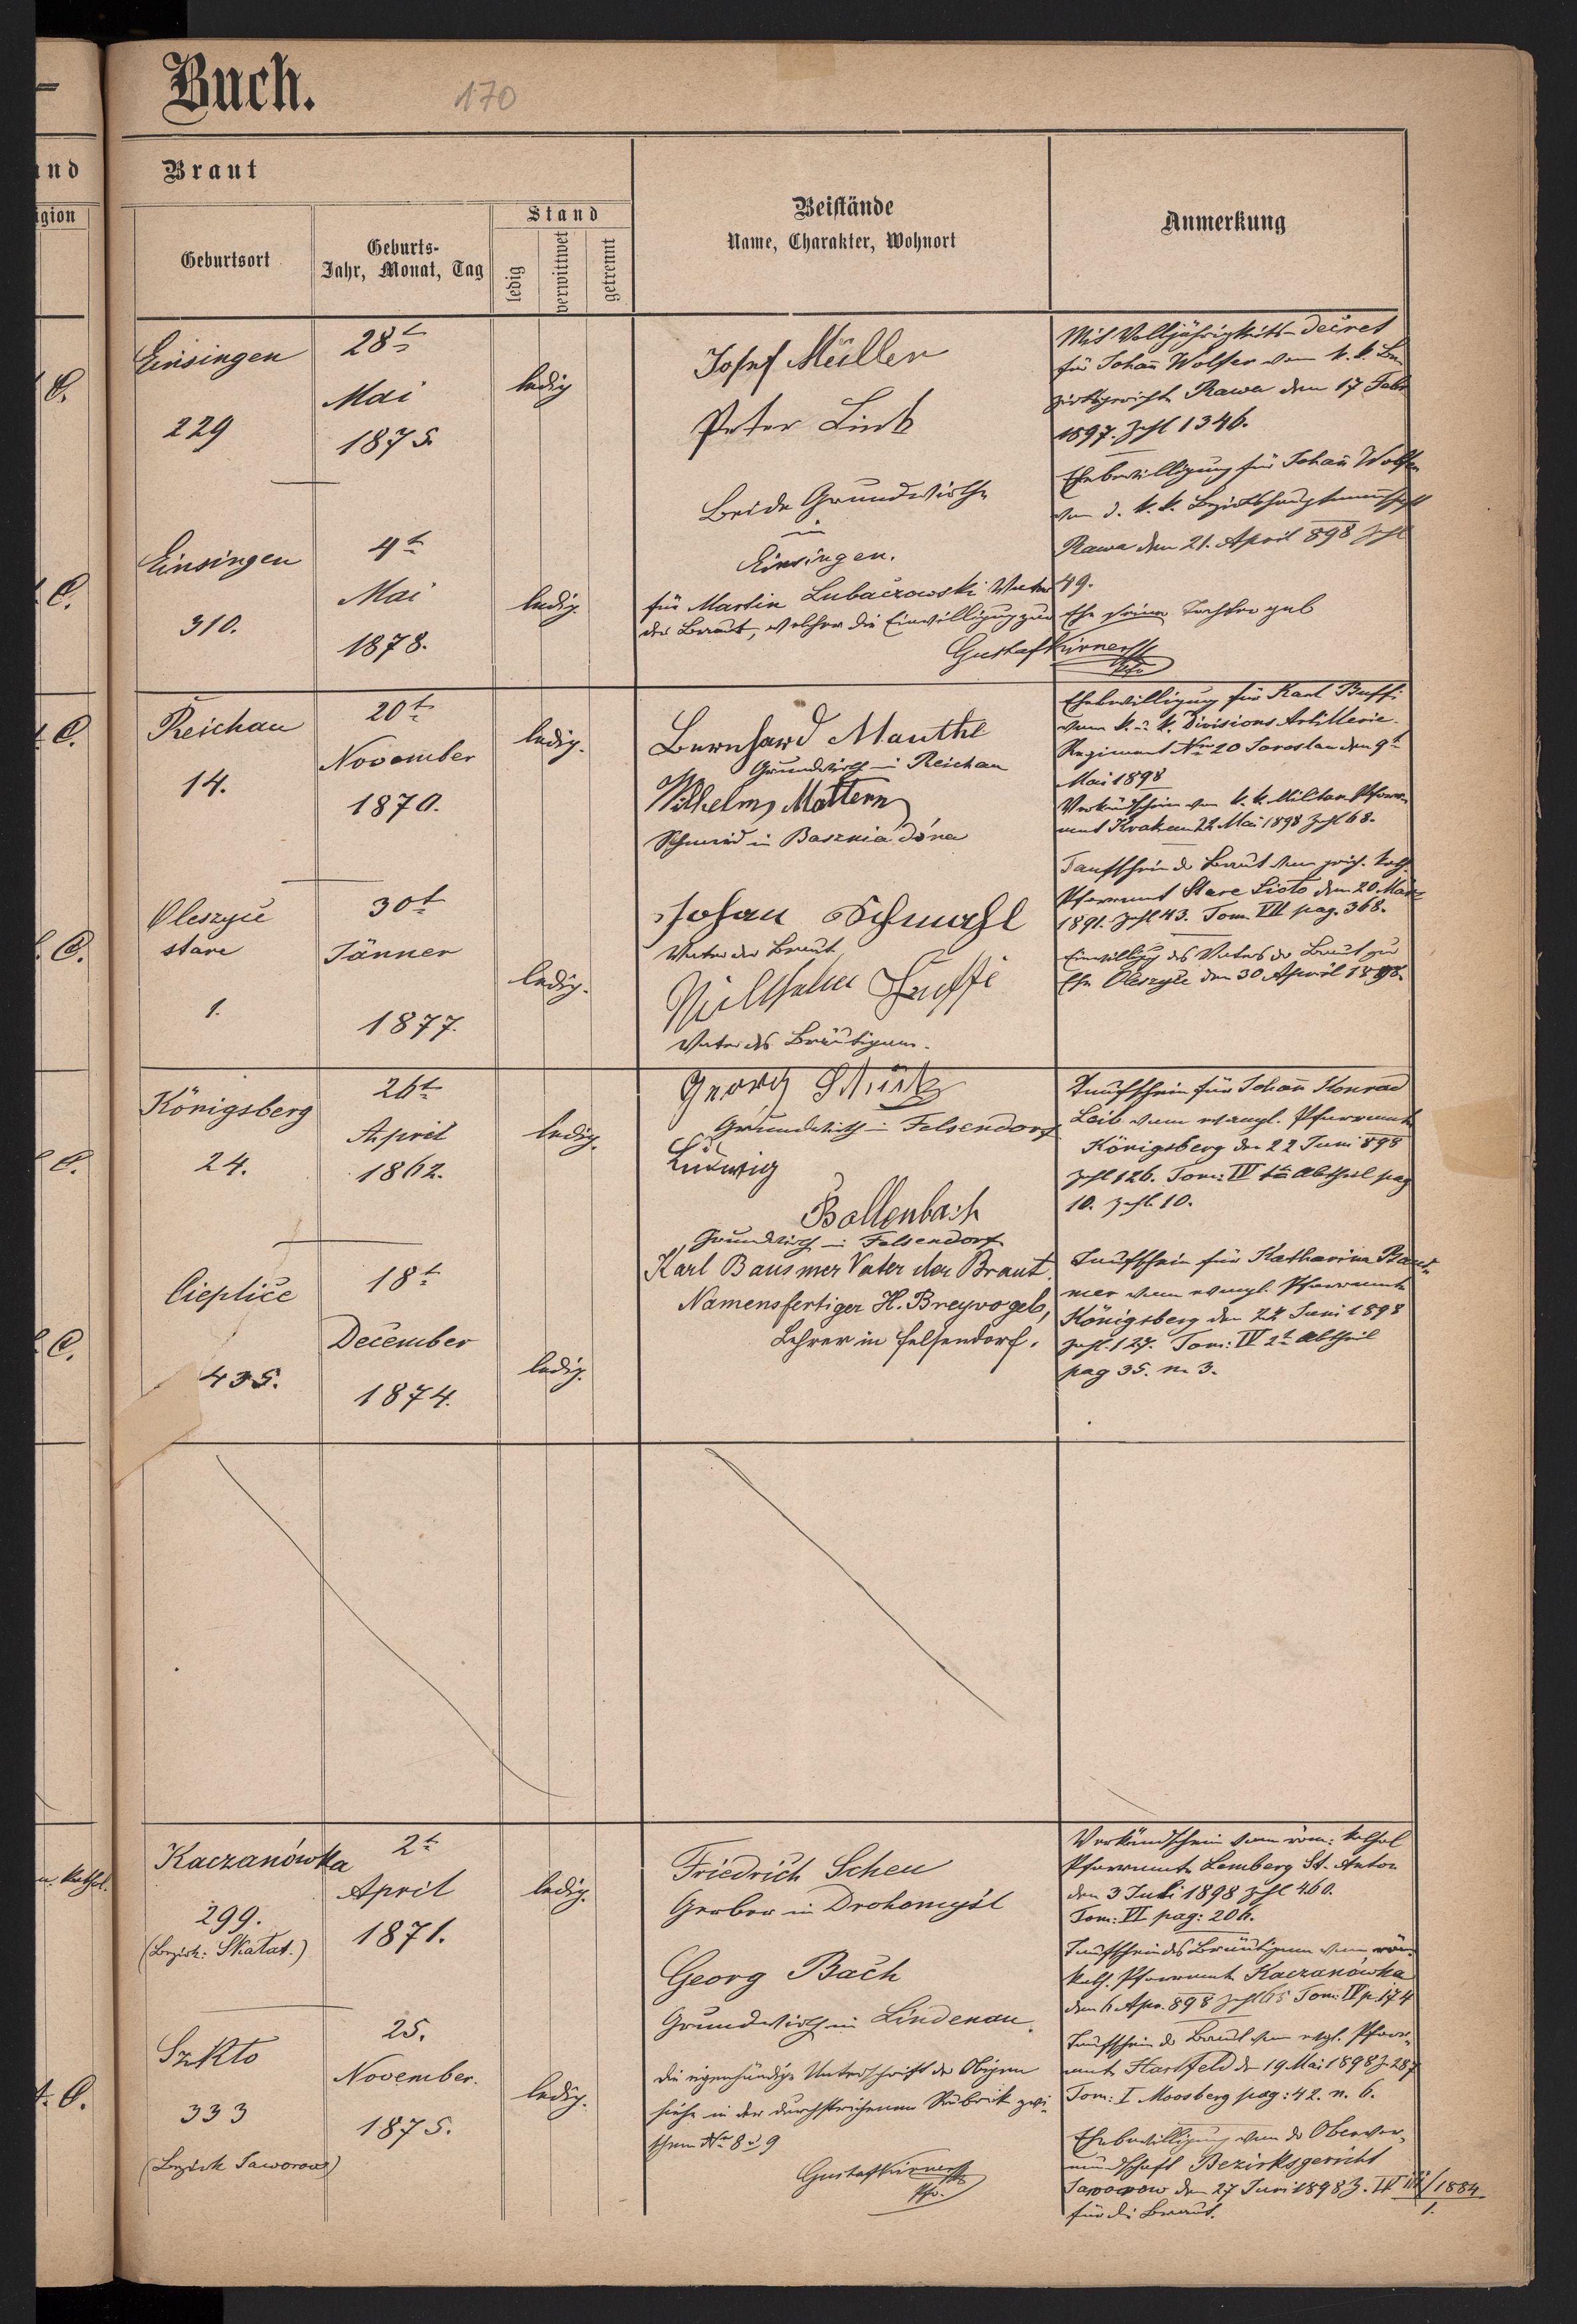 Buch.
170
Braut
Geburtsort
Geburts-
Jahr, Monat, Tag
Stand
ledig
verwittwet
getrennt
Beistände
Name, Charakter, Wohnort
Anmerkung
Einsingen
229
28t
Mai
1875.
ledig
Josef Müller
Peter Link
Beide Grundwirthe
in
Einsingen.
Mit Volljährigkeits-Decret
für Johañ Wolfer vom k. k. Be-
zirksgericht Rawa dem 17 Febr
1897. Zahl 1346.
Ehebewilligung für Johañ Wolfer
von d. k. k. Bezirkshauptmannschaft
Rawa dem 21. April 898 Zahl
49.
Einsingen
310.
4t
Mai
1878.
ledig
für Martin Lubaczowski Vater
der Braut, welcher die Einwilligung zur Ehe seiner Tochter gab
Gustaf Kirner
Pfr.
Reichau
14.
20t
November
1870.
ledig.
Bernhard Manthe
Grundwirth in Reichau
Wilhelm Mattern
Schmied in Basznia dóna
Ehebewilligung für Karl Buffi
vom k. u. k. Divisions Artillerie-
Regiment Nro 20 Jaroslau den 9t
Mai 1898
Verkündschein vom k. k. Militär Pfarr-
amt Krakau 22 Mai 1898 Zahl 68.
Taufschein der Braut vom grich. kath.
Pfarramt Stare Sioto dem 20 März
1891. Zahl 43. Tom VII pag. 368.
Einwilligg des Vaters der Braut zur
Ehe Oleszyce den 30 April 1898.
Oleszyce
stare
1.
30t
Jänner
1877.
ledig.
Johan Schmahl
Vater der Braut
Willhelm Buffi
Vater des Bräutigam.
Königsberg
24.
26t
April
1862.
ledig.
Georg
Grundwirth in Felsendorf
Ludwig
Bollenbach
Grundwirth in Felsendorf
Karl Bausmer Vater der Braut.
Namensfertiger H. Breyvogel,
Lehrer in Felsendorf.
Taufschein für Johañ Konrad
Leib vom evangl. Pfarramte
Königsberg den 22 Juni 898
Zahl 126. Tom: IV 1te Abtheil pag
10. Zahl. 10.
Cieplice
435.
18t
December
1874.
ledig.
Taufschein für Katharina Baus-
mer vom evangl. Pfarramte
Königsberg den 22 Juni 1898
Zahl. 127. Tom: IV 2t Abtheil
pag 35. n. 3.
Kaczanówka
299.
(Bezirk: Skatat.)
2t
April
1871.
ledig.
Friedrich Scheu
Gerber in Drohomyśl
Georg Bach
Grundwirth in Lindenau.
Verkündschein vom röm: kathol
Pfarramte Lemberg St. Anton
den 3 Juli 1898 Zahl 460.
Tom: VI pag: 206.
Taufschein des Bräutigam vom röm.
kath. Pfarramt Kaczanówka
dem 6 Apr. 898 Zahl 65 Tom: IV p. 174
Szkto
333
(Bezirk Jaworow)
25.
November.
1875.
ledig.
Die eigenhändige Unterschrift der Obigen
siehe in der durchstrichenen Rubrik zwi-
schen Nro 8 u 9
Gustaf Kirner
Pfr.
Taufschein der Braut vom evgl. Pfarr-
amt Hartfeld den 19 Mai 1898 Z. 287
Tom: I Moosberg pag: 42. n. 6.
Ehebewilligung von der Obervor-
mundschaft Bezirksgericht
Jaworow den 27 Juni 1898 Z.
1884
1.
für die Braut.